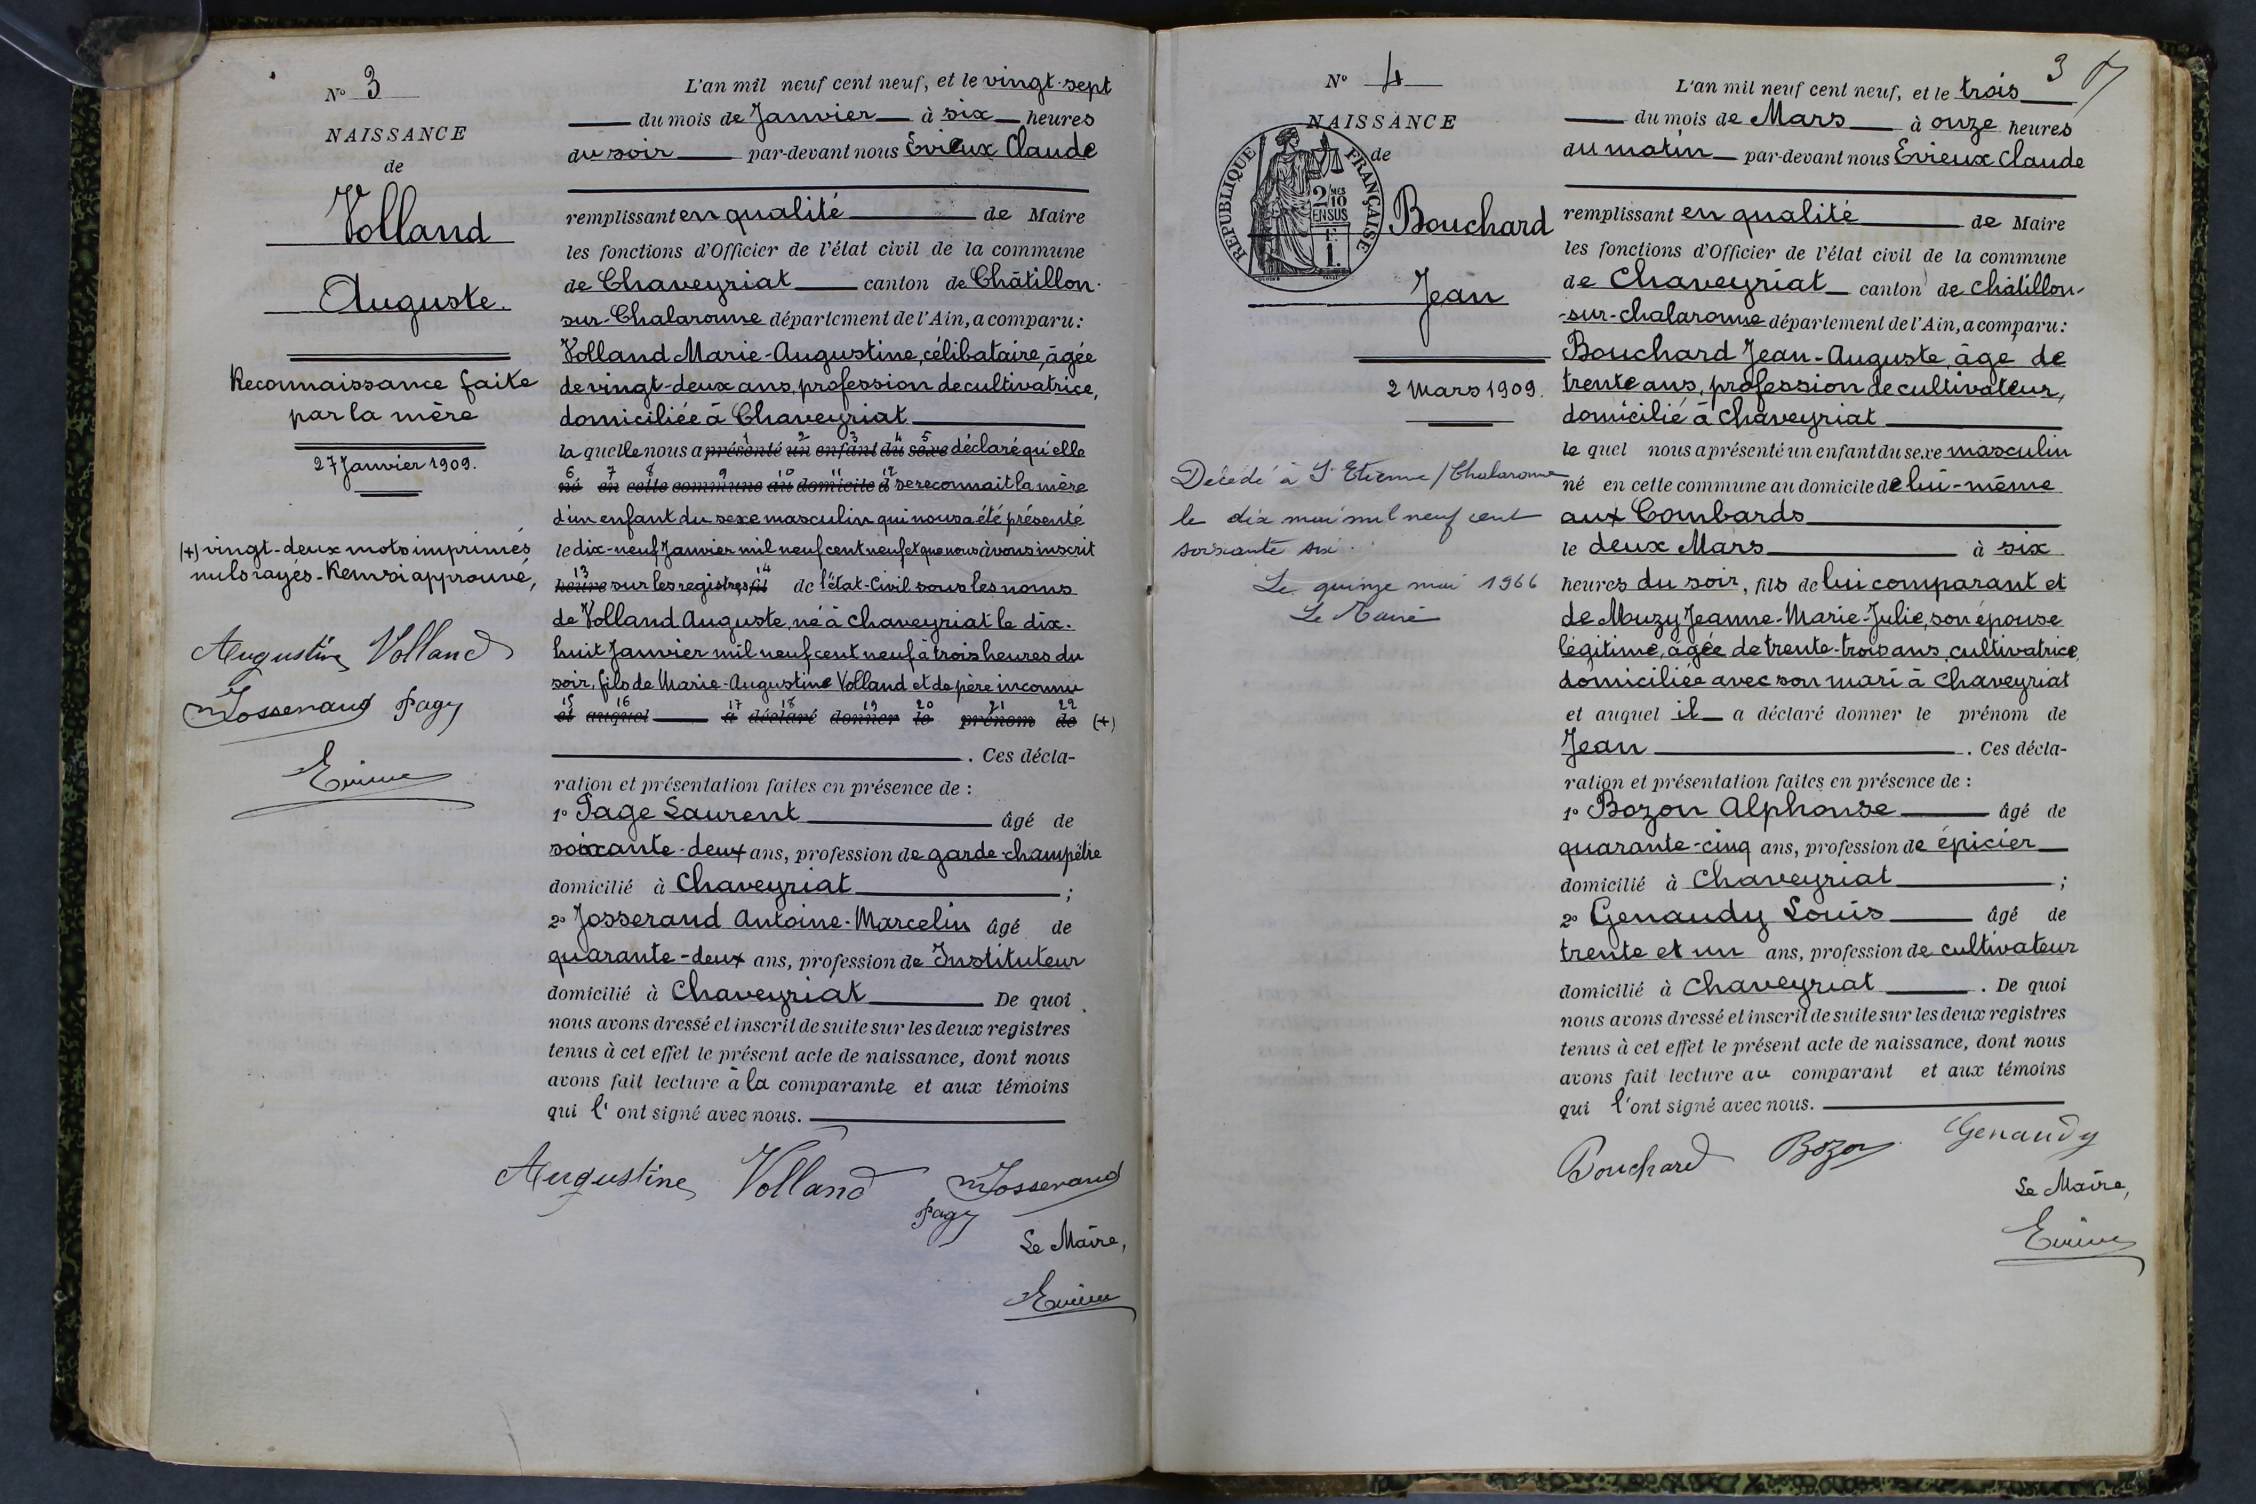 N° 3
NAISSANCE
de
Volland
Auguste.
Reconnaissance faite
par la mère
27 Janvier 1909.
(+) vingt-deux mots imprimés
nuls rayés - Renvoi approuvé,
Augustine Volland
Josserand Pagy
Evieux
L'an mil neuf cent neuf, et le vingt-sept
du mois de Janvier à six heures
du soir par-devant nous Evieux Claude
remplissant en qualité de Maire
les fonctions d'Officier de l'état civil de la commune
de Chaveyriat canton de Châtillon-
sur-Chalaronne département de l'Ain, a comparu :
Volland Marie-Augustine, célibataire, âgée
de vingt-deux ans, profession de cultivatrice,
domiciliée à Chaveyriat
1 2 3 4 5
la quelle nous a présenté un enfant du sexe déclaré qu'elle
6 7 8 9 10 11 12
né en cette commune au domicile d se reconnait la mère
d'un enfant du sexe masculin qui nous a été présenté
le dix-neuf Janvier mil neuf cent neuf et que nous avons inscrit
13 14
heure sur les registres fil de l'état-Civil sous les noms
de Volland Auguste, né à Chaveyriat le dix-
huit Janvier mil neuf cent neuf à trois heures du
soir, fils de Marie-Augustine Volland et de père inconnu
15 16 17 18 19 20 21 22
et auquel a déclaré donner le prénom de (+)
. Ces décla-
ration et présentation faites en présence de :
1° Page Laurent âgé de
soixante-deux ans, profession de garde-champêtre
domicilié à Chaveyriat ;
2° Josserand Antoine-Marcelin âgé de
quarante-deux ans, profession de Instituteur
domicilié à Chaveyriat De quoi
nous avons dressé et inscrit de suite sur les deux registres
tenus à cet effet le présent acte de naissance, dont nous
avons fait lecture à la comparante et aux témoins
qui l'ont signé avec nous.
Augustine Volland Josserand
Pagy
Le Maire,
Evieux
3
N° 4
NAISSANCE
de
RÉPUBLIQUE FRANÇAISE
2 MES
10
EN SUS
1.
Bouchard
Jean
2 Mars 1909.
Décédé à St Etienne / Chalaronne
le dix mai mil neuf cent
soixante six.
Le quinze mai 1966
Le Maire
L'an mil neuf cent neuf, et le trois
du mois de Mars à onze heures
du matin par-devant nous Evieux Claude
remplissant en qualité de Maire
les fonctions d'Officier de l'état civil de la commune
de Chaveyriat canton de Châtillon-
-sur-Chalaronne département de l'Ain, a comparu :
Bouchard Jean-Auguste, âgé de
trente ans, profession de cultivateur,
domicilié à Chaveyriat
le quel nous a présenté un enfant du sexe masculin
né en cette commune au domicile de lui-même
aux Combards
le deux Mars à six
heures du soir, fils de lui comparant et
de Muzy Jeanne-Marie-Julie, son épouse
légitime, âgée de trente-trois ans, cultivatrice,
domiciliée avec son mari à Chaveyriat
et auquel il a déclaré donner le prénom de
Jean . Ces décla-
ration et présentation faites en présence de :
1° Bozon Alphonse âgé de
quarante-cinq ans, profession de épicier
domicilié à Chaveyriat ;
2° Genaudy Louis âgé de
trente et un ans, profession de cultivateur
domicilié à Chaveyriat . De quoi
nous avons dressé et inscrit de suite sur les deux registres
tenus à cet effet le présent acte de naissance, dont nous
avons fait lecture au comparant et aux témoins
qui l'ont signé avec nous.
Bouchard Bozon Genaudy
Le Maire,
Evieux